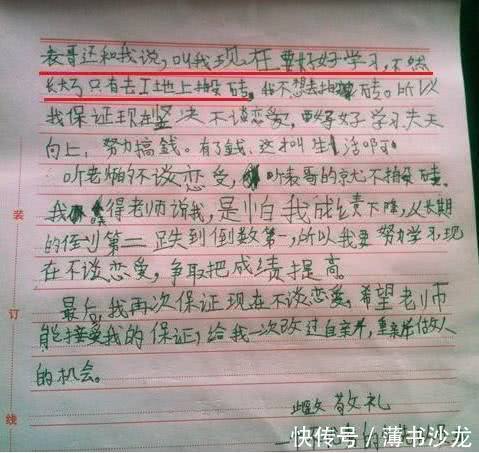 表哥还和我说,叫我现在要好好学习,不然
长大了只有去工地上搬砖。我不想去搬砖。所以
我保证现在坚决不谈恋爱,要好好学习天天
向上,努力搞錢。有了錢,这才叫生活啊!
听老师的不谈恋爱,听表哥的就不搬砖。
我觉得老师说我,是怕我成绩下降,从长期
的倒数第二跌到倒数第一,所以我要努力学习,现
在不谈恋爱,争取把成绩提高。
最后,我再次保证现在不谈恋爱,希望老师
能接受我的保证,给我一次改过自新,重新做人
的机会。
此致 敬礼
装
订
线
快传号/薄书沙龙